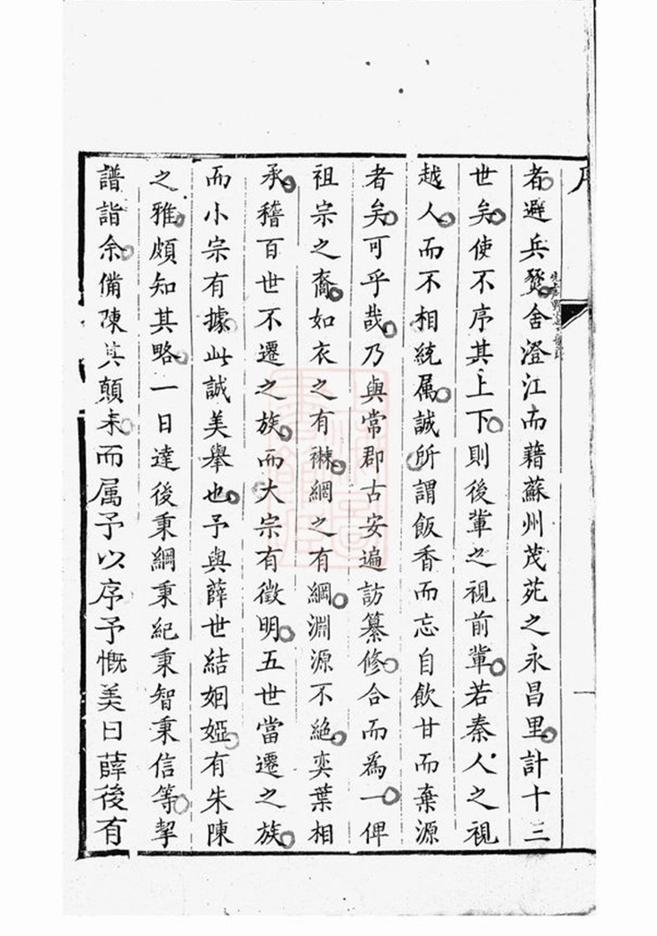 序
者避兵燹舍澄江而籍蘇州茂苑之永昌里計十三
世矣使不序其上下則後輩之視前輩若秦人之視
越人而不相統属誠所謂飯香而忘自飲甘而棄源
者矣可乎哉乃與常郡古安遍訪纂修合而為一俾
祖宗之裔如衣之有襟綱之有綱淵源不絶奕葉相
承稽百世不遷之族而大宗有徵明五世當遷之族
而小宗有據此誠美舉也予與薛世結姻婭有朱陳
之雅頗知其略一日達後秉綱秉紀秉智秉信等挈
譜詣余備陳其顛末而属予以序予慨美曰薛後有